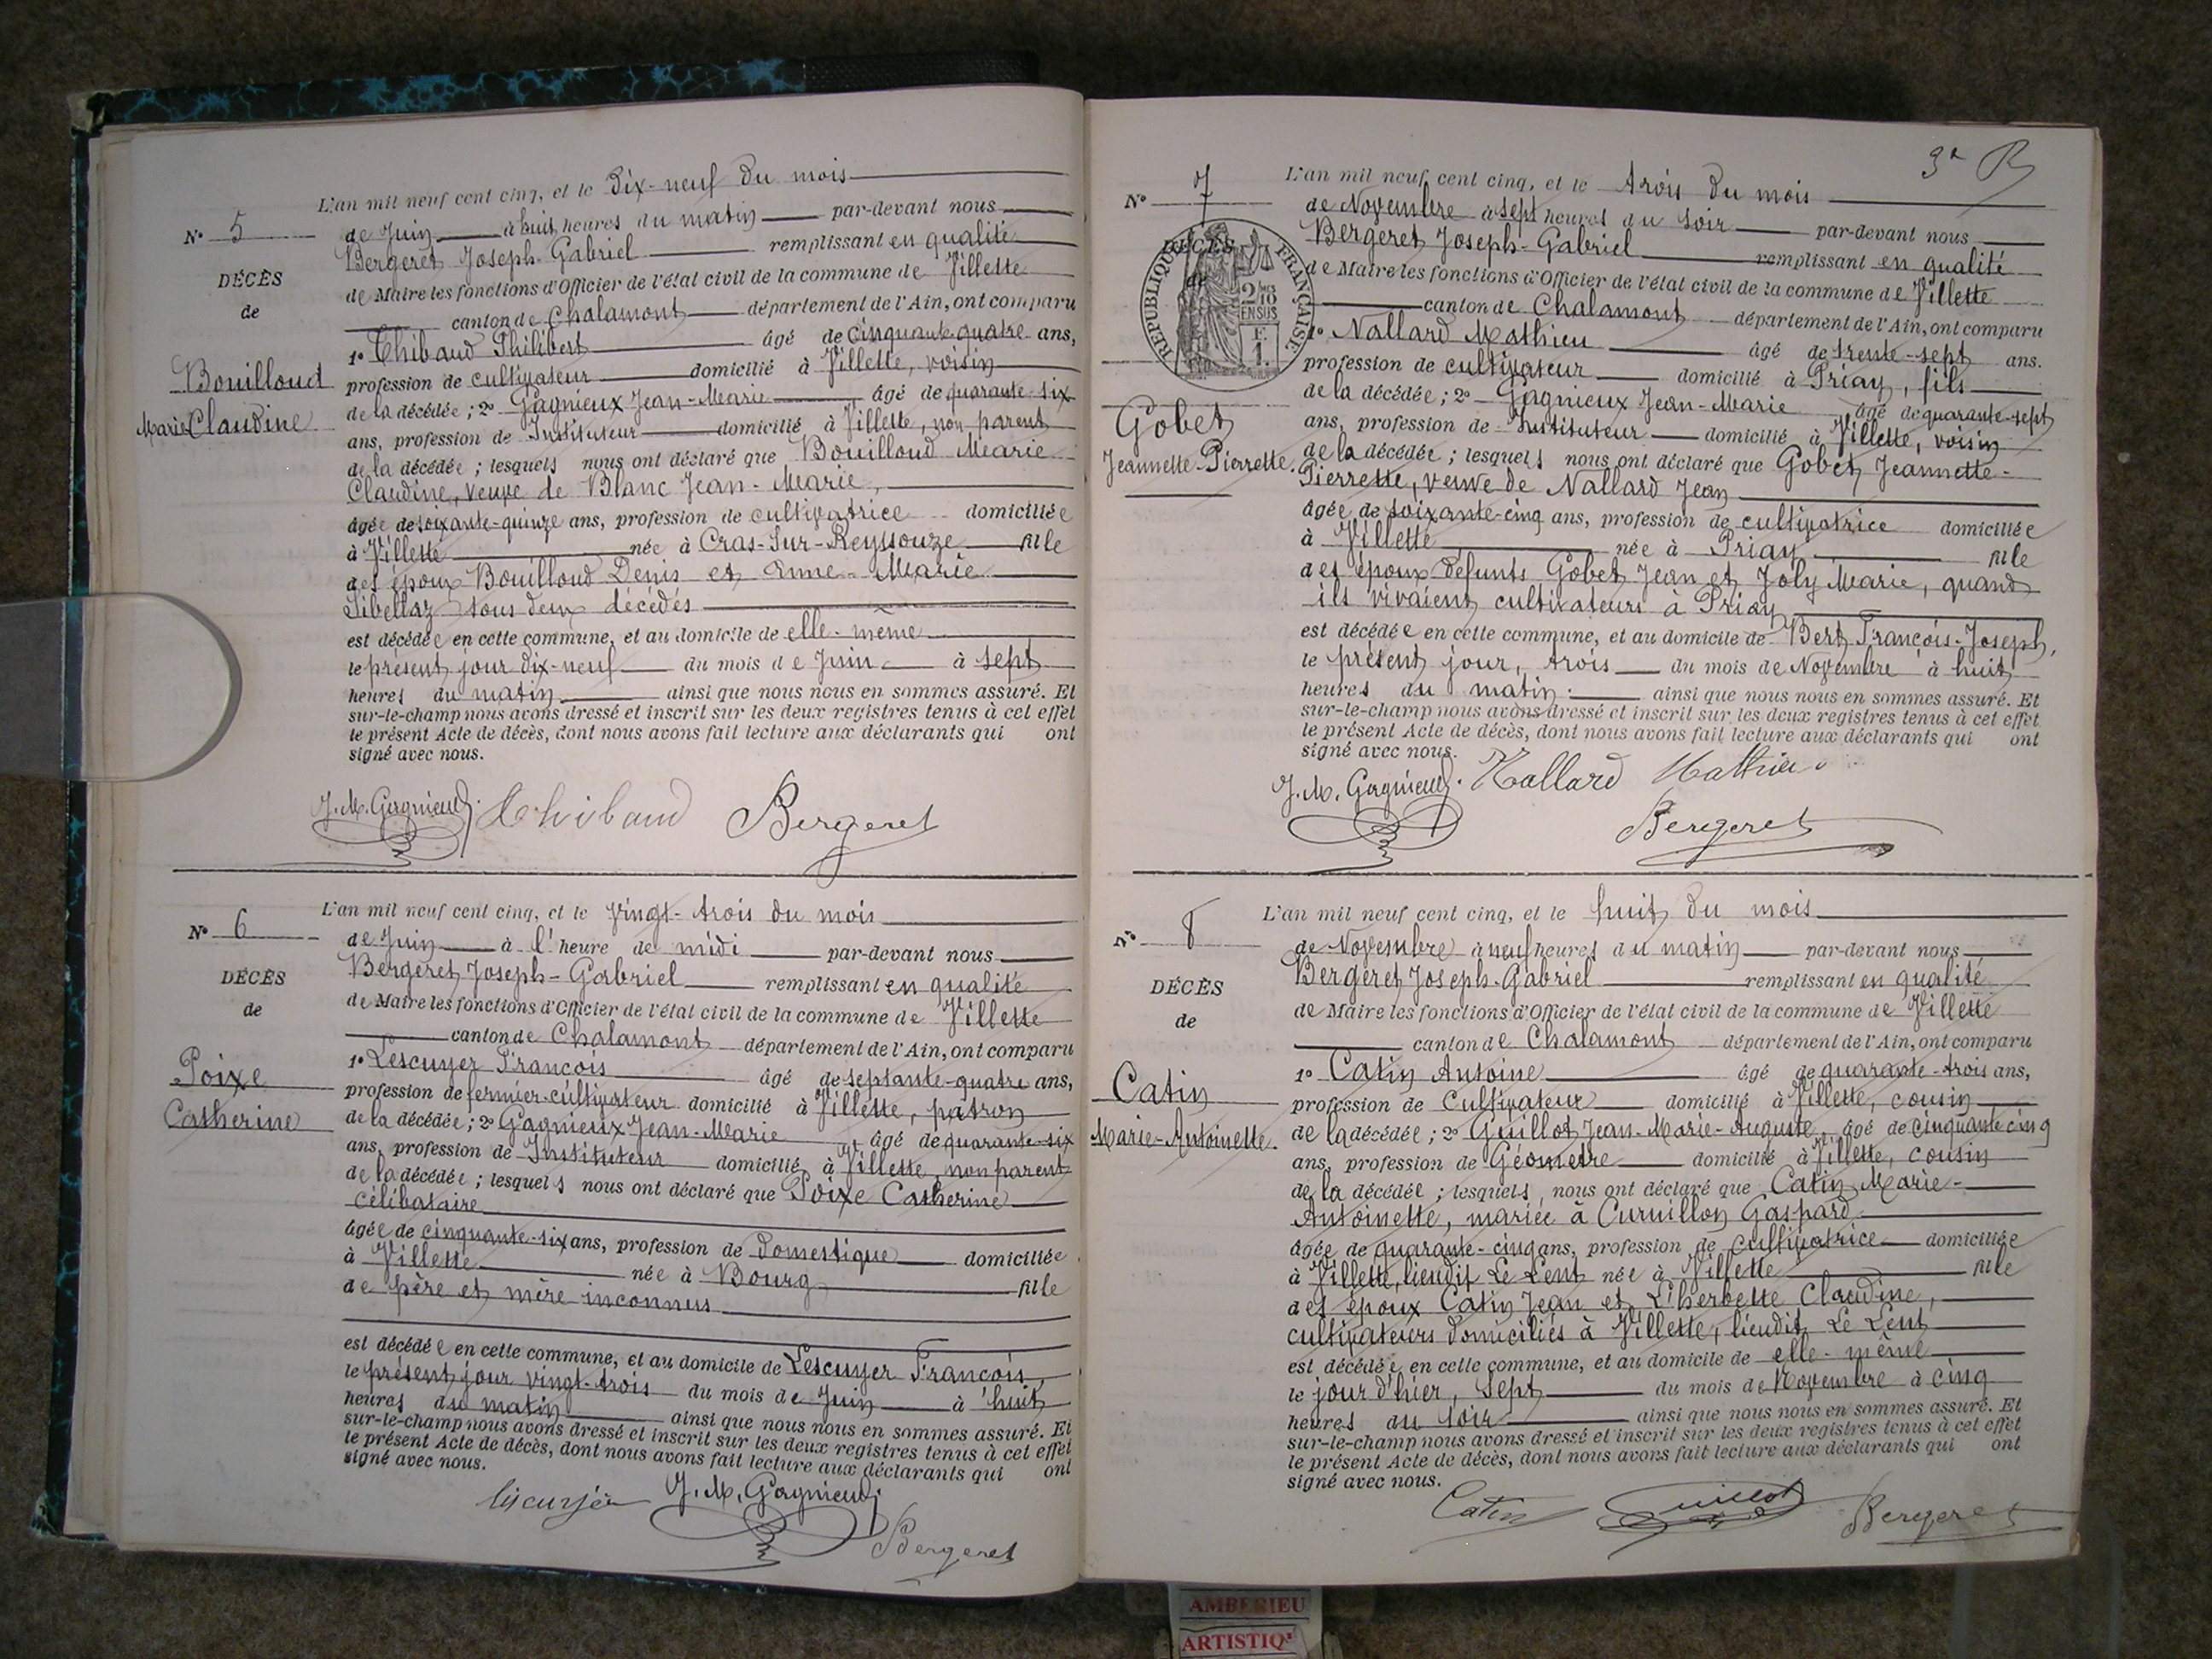 N° 5
DÉCÈS
de
Bouilloud
Marie Claudine
L'an mil neuf cent cinq, et le dix-neuf du mois
de Juin à huit heures du matin par-devant nous
Bergeret Joseph-Gabriel remplissant en qualité
de Maire les fonctions d'Officier de l'état civil de la commune de Villette
canton de Chalamont département de l'Ain, ont comparu
1° Thibaud Philibert âgé de cinquante quatre ans,
profession de cultivateur domicilié à Villette, voisin
de la décédée ; 2° Gagnieux Jean-Marie âgé de quarante-six
ans, profession de Instituteur domicilié à Villette, non parent
de la décédée ; lesquels nous ont déclaré que Bouilloud Marie
Claudine, veuve de Blanc Jean-Marie,
âgée de soixante-quinze ans, profession de cultivatrice domiciliée
à Villette née à Cras-Sur-Reyssouze fille
des époux Bouilloud Denis et Anne-Marie
Sibellaz tous deux décédés
est décédée en cette commune, et au domicile de elle-même
le présent jour dix-neuf du mois de Juin à sept
heures du matin ainsi que nous nous en sommes assuré. Et
sur-le-champ nous avons dressé et inscrit sur les deux registres tenus à cet effet
le présent Acte de décès, dont nous avons fait lecture aux déclarants qui ont
signé avec nous.
J. M. Gagnieux. Thibaud Bergeret
N° 6
DÉCÈS
de
Poixe
Catherine
L'an mil neuf cent cinq, et le vingt-trois du mois
de Juin à l'heure de midi par-devant nous
Bergeret Joseph-Gabriel remplissant en qualité
de Maire les fonctions d'Officier de l'état civil de la commune de Villette
canton de Chalamont département de l'Ain, ont comparu
1° Lescuyer François âgé de septante-quatre ans,
profession de fermier-cultivateur domicilié à Villette, patron
de la décédée ; 2° Gagnieux Jean-Marie, âgé de quarante-six
ans, profession de Instituteur domicilié à Villette, non parent
de la décédée ; lesquels nous ont déclaré que Poixe Catherine
célibataire
âgée de cinquante-six ans, profession de domestique domiciliée
à Villette née à Bourg fille
de père et mère inconnus
est décédée en cette commune, et au domicile de Lescuyer François,
le présent jour vingt-trois du mois de Juin à huit
heures du matin ainsi que nous nous en sommes assuré. Et
sur-le-champ nous avons dressé et inscrit sur les deux registres tenus à cet effet
le présent Acte de décès, dont nous avons fait lecture aux déclarants qui ont
signé avec nous.
J. M. Gagnieux
Bergeret
N° 7
DÉCÈS
de
RÉPUBLIQUE FRANÇAISE
Gobet
Jeannette-Pierrette.
L'an mil neuf cent cinq, et le trois du mois
de Novembre à sept heures du soir par-devant nous
Bergeret Joseph-Gabriel remplissant en qualité
de Maire les fonctions d'Officier de l'état civil de la commune de Villette
canton de Chalamont département de l'Ain, ont comparu
1° Nallard Mathieu âgé de trente-sept ans.
profession de cultivateur domicilié à Priay, fils
de la décédée ; 2° Gagnieux Jean-Marie âgé de quarante-sept
ans, profession de Instituteur domicilié à Villette, voisin
de la décédée ; lesquels nous ont déclaré que Gobet Jeannette-
Pierrette, veuve de Nallard Jean
âgée de soixante-cinq ans, profession de cultivatrice domiciliée
à Villette née à Priay fille
des époux défunts Gobet Jean et Joly Marie, quand
ils vivaient cultivateurs à Priay
est décédée en cette commune, et au domicile de Bert François-Joseph,
le présent jour, trois du mois de Novembre à huit
heures du matin. ainsi que nous nous en sommes assuré. Et
sur-le-champ nous avons dressé et inscrit sur les deux registres tenus à cet effet
le présent Acte de décès, dont nous avons fait lecture aux déclarants qui ont
signé avec nous.
J. M. Gagnieux. Nallard Mathieu
Bergeret
N° 8
DÉCÈS
de
Catin
Marie-Antoinette.
L'an mil neuf cent cinq, et le huit du mois
de Novembre à neuf heures du matin par-devant nous
Bergeret Joseph-Gabriel remplissant en qualité
de Maire les fonctions d'Officier de l'état civil de la commune de Villette
canton de Chalamont département de l'Ain, ont comparu
1° Catin Antoine âgé de quarante-trois ans,
profession de Cultivateur domicilié à Villette, cousin
de la décédée ; 2° Guillot Jean-Marie-Auguste, âgé de cinquante cinq
ans, profession de Géomètre domicilié à Villette, cousin
de la décédée ; lesquels nous ont déclaré que Catin Marie-
Antoinette, mariée à Curvillon Gaspard
âgée de quarante-cinq ans, profession de cultivatrice domiciliée
à Villette, lieudit Le Lent née à Villette fille
des époux Catin Jean et Liherbette Claudine,
cultivateurs domiciliés à Villette, lieudit Le Lent
est décédée en cette commune, et au domicile de elle-même
le jour d'hier, sept du mois de Novembre à cinq
heures du soir ainsi que nous nous en sommes assuré. Et
sur-le-champ nous avons dressé et inscrit sur les deux registres tenus à cet effet
le présent Acte de décès, dont nous avons fait lecture aux déclarants qui ont
signé avec nous.
Catin Guillot Bergeret
AMBERIEU
ARTISTIQ